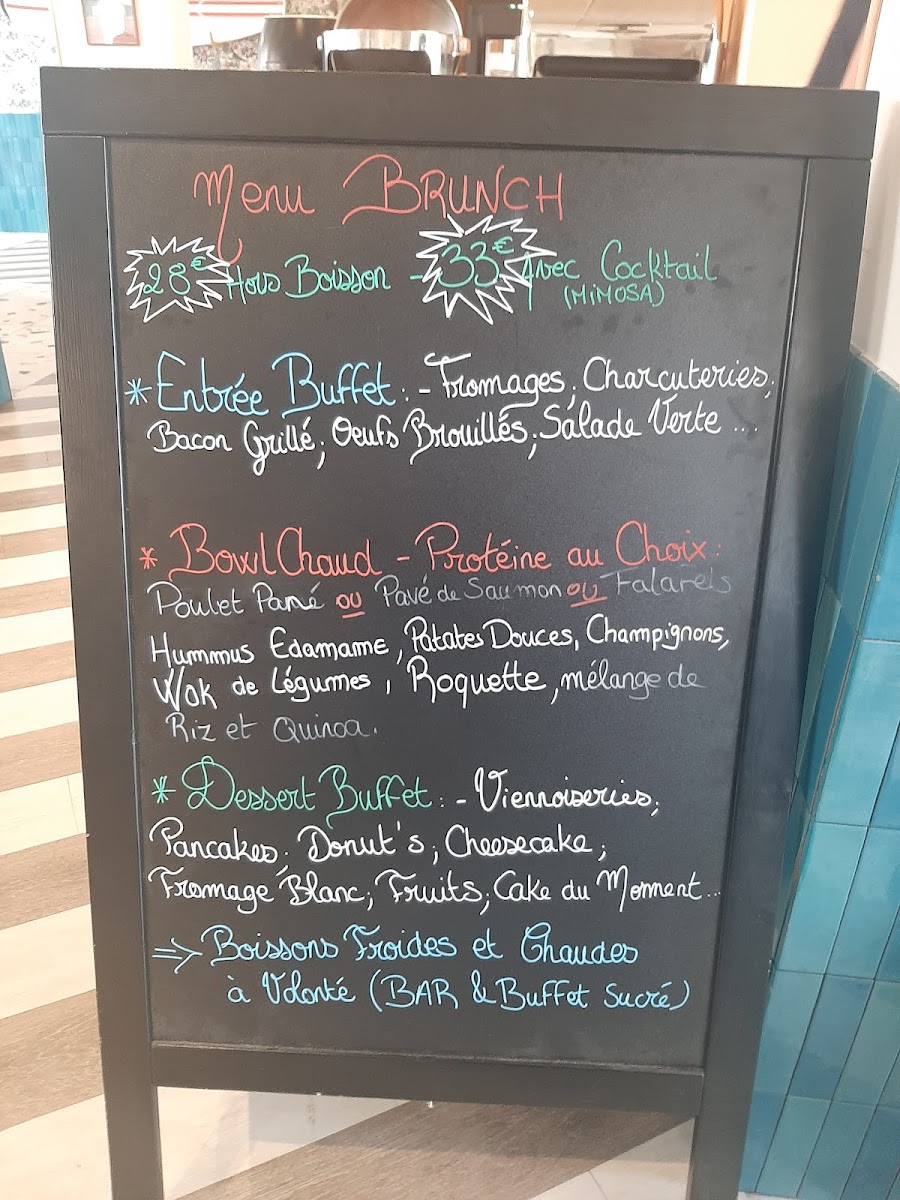 Menu BRUNCH
28€ Hors Boisson - 33€ Avec Cocktail
(MIMOSA)
* Entrée Buffet : - Fromages ; Charcuteries ;
Bacon Grillé ; Oeufs Brouillés ; Salade Verte ...
* Bowl Chaud - Protéine au Choix :
Poulet Pané ou Pavé de Saumon ou Falafels
Hummus Edamame, Patates Douces, Champignons,
Wok de Légumes, Roquette, mélange de
Riz et Quinoa.
* Dessert Buffet : - Viennoiseries ;
Pancakes ; Donut's ; Cheesecake ;
Fromage Blanc ; Fruits ; Cake du Monment ...
=> Boissons Froides et Chaudes
à Volonté (BAR & Buffet Sucré)